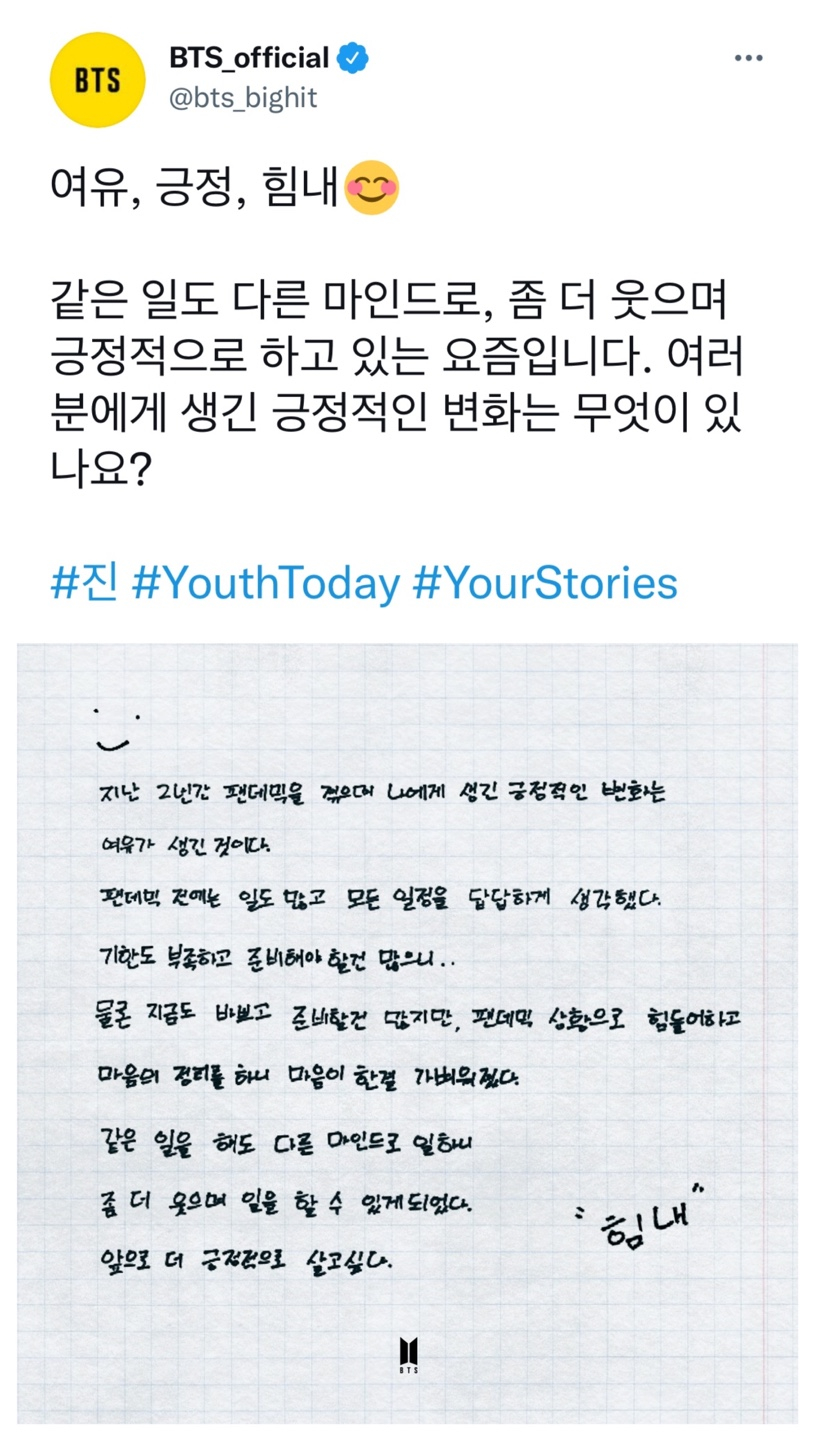 BTS
BTS_official
@bts_bighit
여유, 긍정, 힘내😊
같은 일도 다른 마인드로, 좀 더 웃으며
긍정적으로 하고 있는 요즘입니다. 여러
분에게 생긴 긍정적인 변화는 무엇이 있
나요?
#진 #YouthToday #YourStories
지난 2년간 팬데믹을 겪으며 나에게 생긴 긍정적인 변화는
여유가 생긴 것이다.
팬데믹 전에는 일도 많고 모든 일정을 답답하게 생각했다.
기한도 부족하고 준비해야 할건 많으니..
물론 지금도 바쁘고 준비할건 많지만, 팬데믹 상황으로 힘들어하고
마음의 정리를 하니 마음이 한결 가벼워졌다.
같은 일을 해도 다른 마인드로 일하니
좀 더 웃으며 일을 할 수 있게되었다.
앞으로 더 긍정적으로 살고싶다.
"힘내"
BTS